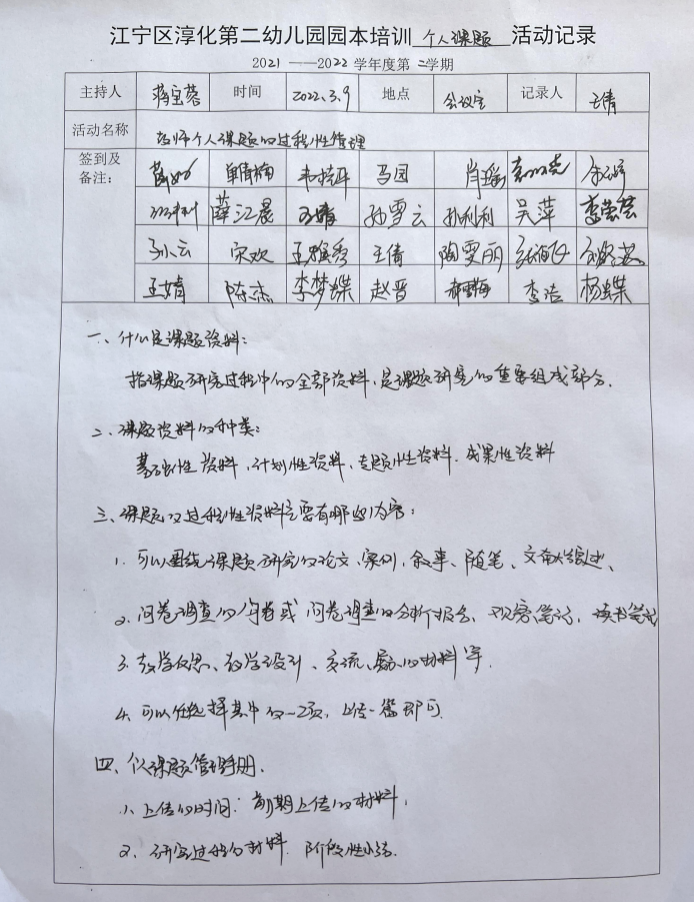 江宁区淳化第二幼儿园园本培训 个人课题 活动记录
2021 ——2022 学年度第 二学期
主持人 蒋宝蓉 时间 2022.3.9 地点 会议室 记录人 王倩
活动名称 教师个人课题的过程性管理
签到及 单倩楠 韦桂萍 马园 肖瑶
备注: 薛江晨 王婧 孙雪云 孙利利 吴萍 李芸芸
孙云 宋欢 王雅秀 王倩 陶雯丽
王婧 陈杰 李梦蝶 赵晋 李洁 杨蝶
一、什么是课题资料:
指课题研究过程中的全部资料,是课题研究的重要组成部分.
二、课题资料的种类:
基础性资料、计划性资料、专题性资料、成果性资料
三、课题的过程性资料主要有哪些内容:
1. 可以围绕课题研究的论文、案例、叙事、随笔、文献综述、
2. 问卷调查的问卷或问卷调查的分析报告、观察笔记、读书笔记
3. 教学反思、教学设计、交流、的材料等.
4. 可以任选择其中的一2项,上传一篇即可.
四、个人课题管理手册.
1、上传的时间:前期上传的材料,
2、研究过程的材料. 阶段性小结.